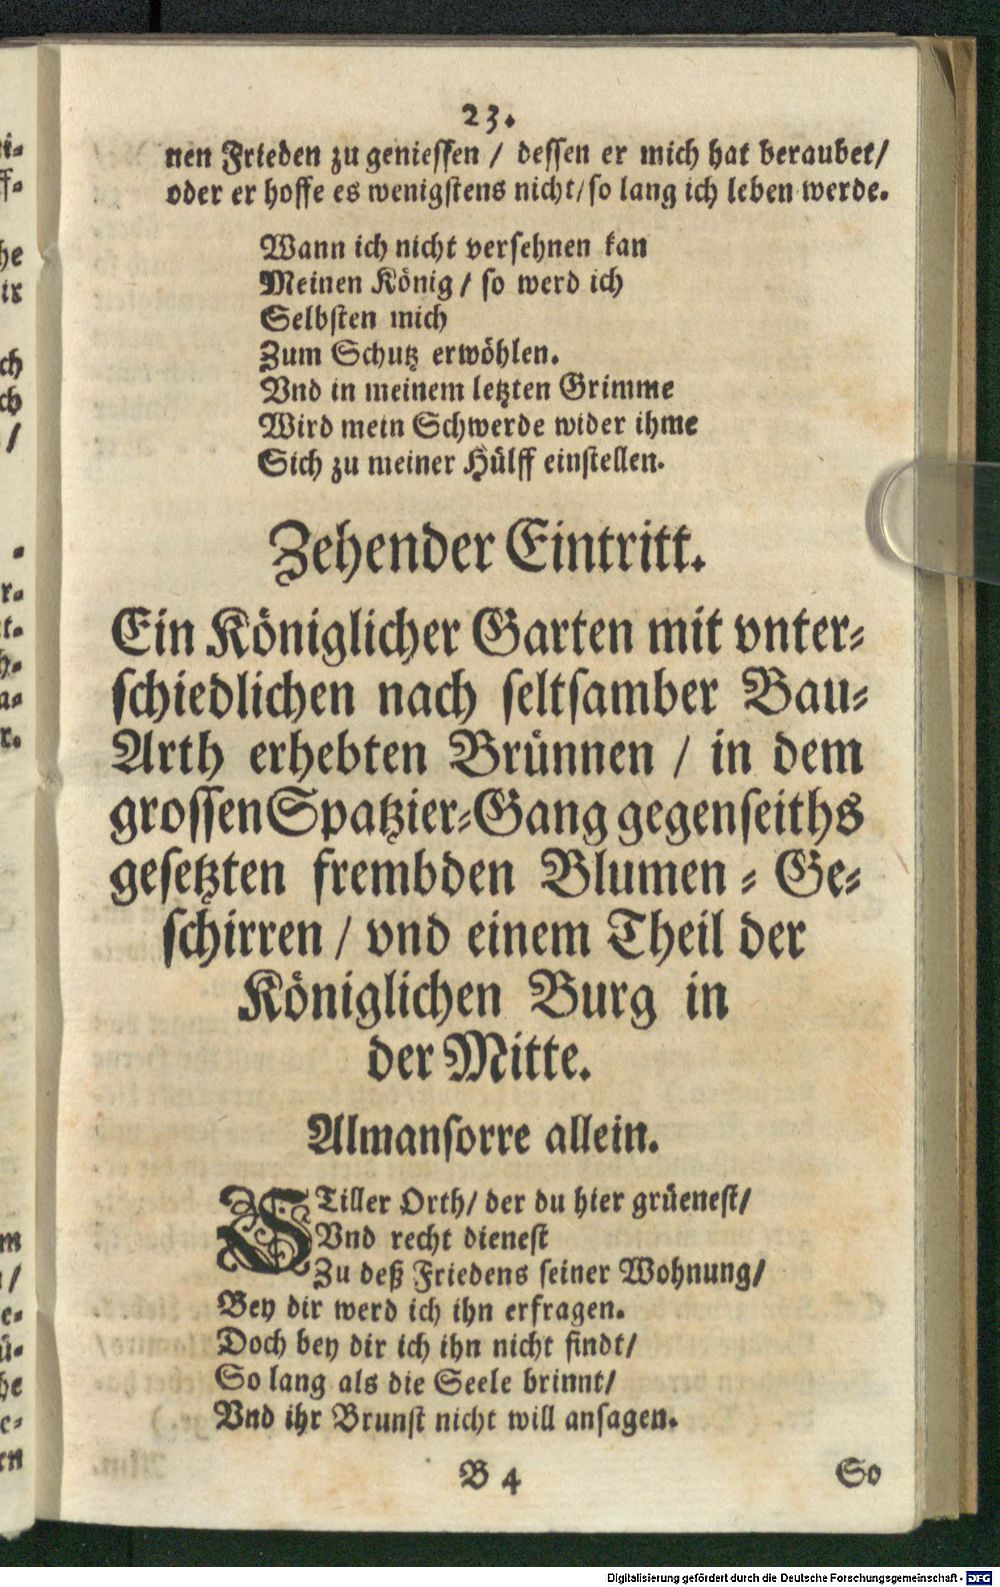 23.
nen Frieden zu geniessen / dessen er mich hat beraubet/
oder er hoffe es wenigstens nicht/ so lang ich leben werde.
Wann ich nicht versehnen kan
Meinen König / so werd ich
Selbsten mich
Zum Schutz erwöhlen.
Vnd in meinem letzten Grimme
Wird mein Schwerde wider ihme
Sich zu meiner Hülff einstellen.
Zehender Eintritt.
Ein Königlicher Garten mit vnter-
schiedlichen nach seltsamber Bau-
Arth erhebten Brünnen / in dem
grossen Spatzier-Gang gegenseiths
gesetzten frembden Blumen - Ge-
schirren / vnd einem Theil der
Königlichen Burg in
der Mitte.
Almansorre allein.
STiller Orth/ der du hier grüenest/
Vnd recht dienest
Zu deß Friedens seiner Wohnung/
Bey dir werd ich ihn erfragen.
Doch bey dir ich ihn nicht findt/
So lang als die Seele brinnt/
Vnd ihr Brunst nicht will ansagen.
B 4 So
Digitalisierung gefördert durch die Deutsche Forschungsgemeinschaft - DFG